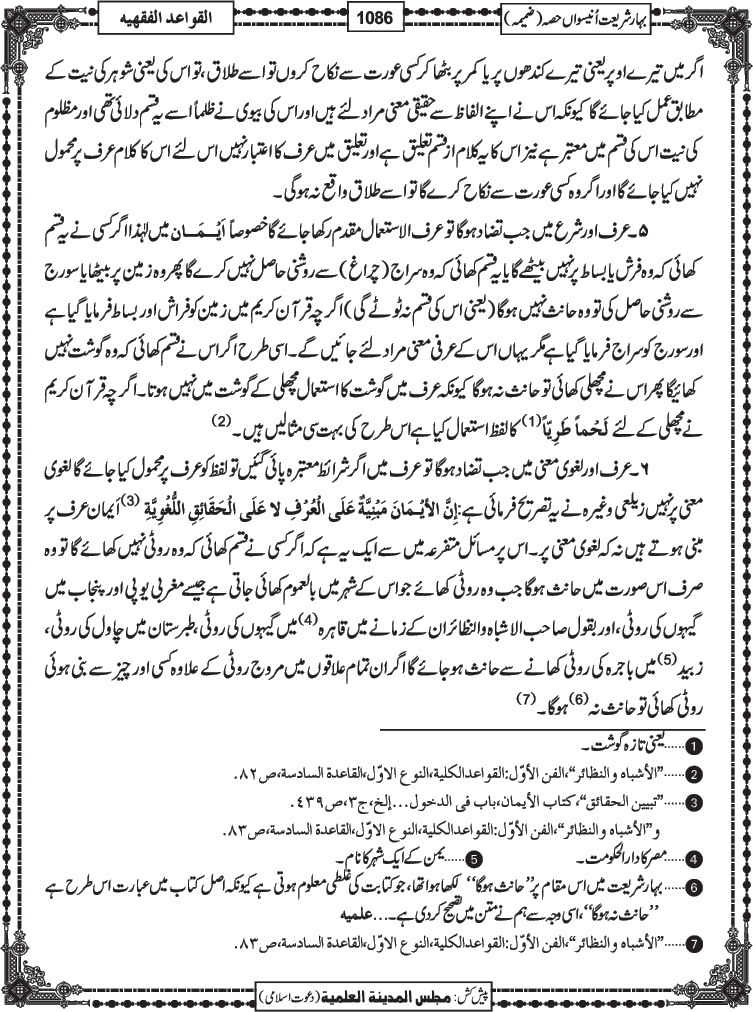 بہار شریعت اُنیسواں حصہ (ضمیمہ)
1086
القواعد الفقهيه
اگر میں تیرے اوپر یعنی تیرے کندھوں پر یا کمر پر بٹھا کر کسی عورت سے نکاح کروں تو اسے طلاق، تو اس کی یعنی شوہر کی نیت کے
مطابق عمل کیا جائے گا کیونکہ اس نے اپنے الفاظ سے حقیقی معنی مراد لئے ہیں اور اس کی بیوی نے ظلماً اسے یہ قسم دلائی تھی اور مظلوم
کی نیت اس کی قسم میں معتبر ہے نیز اس کا یہ کلام از قسم تعلیق ہے اور تعلیق میں عرف کا اعتبار نہیں اس لئے اس کا کلام عرف پر محمول
نہیں کیا جائے گا اور اگر وہ کسی عورت سے نکاح کرے گا تو اسے طلاق واقع نہ ہوگی۔
۵۔ عرف اور شرع میں جب تضاد ہوگا تو عرف الاستعمال مقدم رکھا جائے گا خصوصاً اَیْمَان میں لہٰذا اگر کسی نے یہ قسم
کھائی کہ وہ فرش یا بساط پر نہیں بیٹھے گا یا یہ قسم کھائی کہ وہ سراج (چراغ) سے روشنی حاصل نہیں کرے گا پھر وہ زمین پر بیٹھا یا سورج
سے روشنی حاصل کی تو وہ حانث نہیں ہوگا (یعنی اس کی قسم نہ ٹوٹے گی) اگرچہ قرآن کریم میں زمین کو فراش اور بساط فرمایا گیا ہے
اور سورج کو سراج فرمایا گیا ہے مگر یہاں اس کے عرفی معنی مراد لئے جائیں گے۔ اسی طرح اگر اس نے قسم کھائی کہ وہ گوشت نہیں
کھائیگا پھر اس نے مچھلی کھائی تو حانث نہ ہوگا کیونکہ عرف میں گوشت کا استعمال مچھلی کے گوشت میں نہیں ہوتا۔ اگرچہ قرآن کریم
نے مچھلی کے لئے لَحْماً طَرِیّاً (1) کا لفظ استعمال کیا ہے اس طرح کی بہت سی مثالیں ہیں۔ (2)
۶۔ عرف اور لغوی معنی میں جب تضاد ہوگا تو عرف میں اگر شرائط معتبرہ پائی گئیں تو لفظ کو عرف پر محمول کیا جائے گا لغوی
معنی پر نہیں زیلعی وغیرہ نے یہ تصریح فرمائی ہے: اِنَّ الْاَیْمَانَ مَبْنِیَّةٌ عَلَی الْعُرْفِ لا عَلَی الْحَقَائِقِ اللُّغَوِیَّةِ (3) اَیمان عرف پر
مبنی ہوتے ہیں نہ کہ لغوی معنی پر۔ اس پر مسائل متفرعہ میں سے ایک یہ ہے کہ اگر کسی نے قسم کھائی کہ وہ روٹی نہیں کھائے گا تو وہ
صرف اس صورت میں حانث ہوگا جب وہ روٹی کھائے جو اس کے شہر میں بالعموم کھائی جاتی ہے جیسے مغربی یوپی اور پنجاب میں
گیہوں کی روٹی، اور بقول صاحب الاشباہ والنظائر ان کے زمانے میں قاہرہ (4) میں گیہوں کی روٹی، طبرستان میں چاول کی روٹی،
زبید (5) میں باجرہ کی روٹی کھانے سے حانث ہوجائے گا اگر ان تمام علاقوں میں مروج روٹی کے علاوہ کسی اور چیز سے بنی ہوئی
روٹی کھائی تو حانث نہ (6) ہوگا۔ (7)
1 ......یعنی تازہ گوشت۔
2 ......"الأشباه والنظائر"، الفن الأوّل: القواعد الکلیة، النوع الاوّل، القاعدة السادسة، ص٨٢.
3 ......"تبیین الحقائق"، کتاب الأیمان، باب فی الدخول...إلخ، ج٣، ص٤٣٩.
و"الأشباه والنظائر"، الفن الأوّل: القواعد الکلیة، النوع الاوّل، القاعدة السادسة، ص٨٣.
4 ......مصر کا دارالحکومت۔ 5 ......یمن کے ایک شہر کا نام۔
6 ......بہار شریعت میں اس مقام پر "حانث ہوگا" لکھا ہوا تھا، جو کتابت کی غلطی معلوم ہوتی ہے کیونکہ اصل کتاب میں عبارت اس طرح ہے
"حانث نہ ہوگا"، اسی وجہ سے ہم نے متن میں تصحیح کردی ہے۔...علمیه
7 ......"الأشباه والنظائر"، الفن الأوّل: القواعد الکلیة، النوع الاوّل، القاعدة السادسة، ص٨٣.
پیش کش: مجلس المدینة العلمیة (دعوت اسلامی)